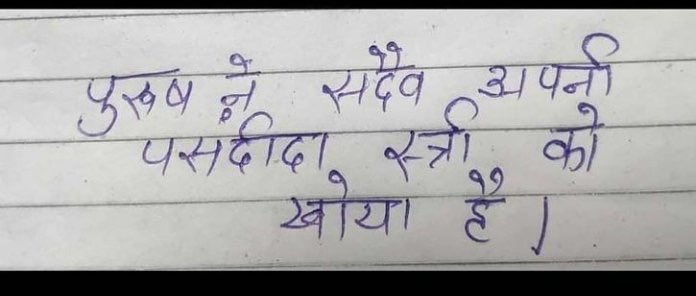 पुरुष ने सदैव अपनी
पसदीदा स्त्री को
खोया है।